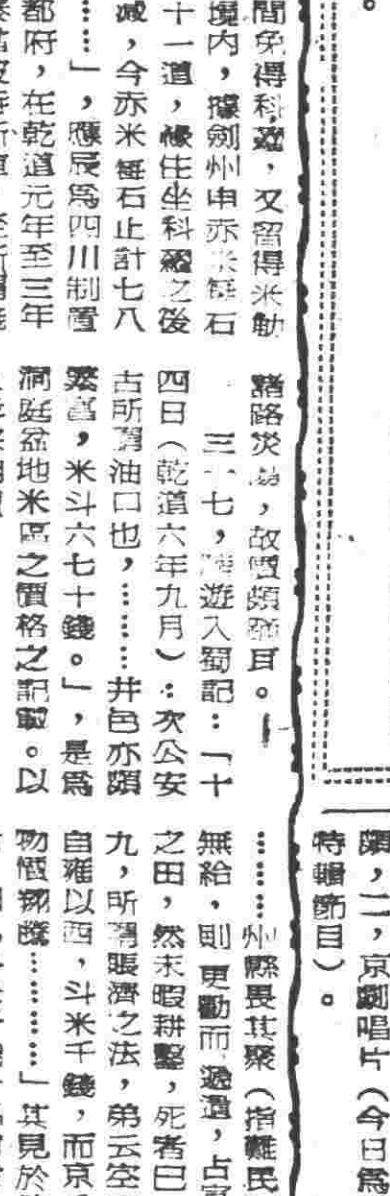 間免得科糴,又留得米動
境内,據劍州申赤米每石
十一道,緣住坐科糴之後
減,今赤米每石止計七八
……」,應辰爲四川制置
都府,在乾道元年至三年
諸路災,故價頗
三十七,遊入蜀記:「十
四日(乾道六年九月):次公安
古所謂油口也,………井邑亦頗
繁富,米斗六七十錢。」,是爲
洞庭盆地米區之價格之記載。以
,二,京劇唱片(今日爲
特輯節目)。
………州縣畏其聚(指難民
無給,則更動而,占
之田,然未暇耕墾,死者巳
九,所謂賑濟之法,弟云空
自雍以西,斗米千錢,而京
物價………」其見於